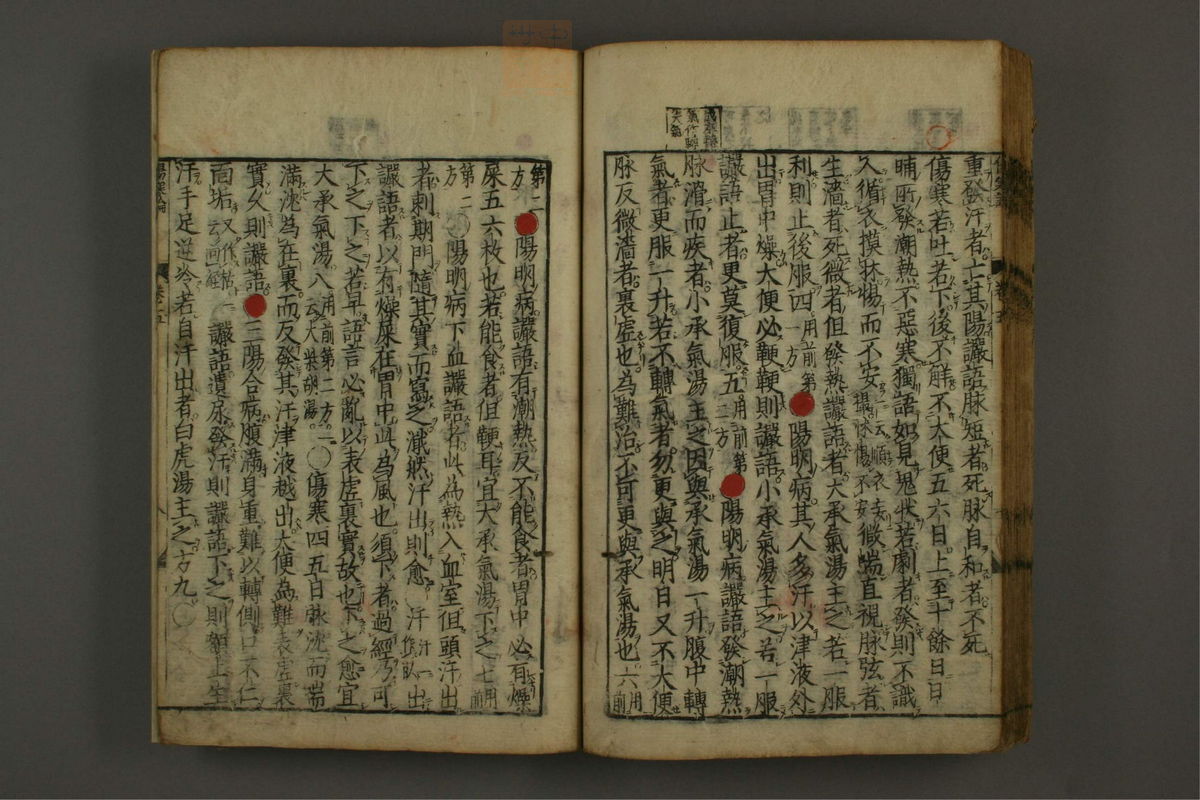 重發汗者亡其陽讝語脉短者死脉自和者不死
傷寒若吐若下後不解不大便五六日上至十餘日日
晡所發潮熱不惡寒獨語如見鬼狀若劇者發則不識
人循衣摸牀惕而不安一云順衣妄撮牀惕不安微喘直視脉弦者
生濇者死微者但發熱讝語者大承氣湯主之若一服
利則止後服四用前第一方陽明病其人多汗以津液外
出胃中燥大便必鞕鞕則讝語小承氣湯主之若一服
讝語止者更莫復服五用前第二方陽明病讝語發潮熱
脉滑而疾者小承氣湯主之因與承氣湯一升腹中轉
氣者更服一升若不轉氣者勿更與之明日又不大便
脉反微濇者裏虛也為難治不可更與承氣湯也六用前
第二方陽明病讝語有潮熱反不能食者胃中必有燥
屎五六枚也若能食者但鞕耳宜大承氣湯下之七用前
第二方陽明病下血讝語者此為熱入血室但頭汗出
者刺期門隨其實而寫之濈然汗出則愈汗汗一作臥出
讝語者以有燥屎在胃中此為風也須下者過經乃可
下之下之若早語言必亂以表虛裏實故也下之愈宜
大承氣湯八用前第二方一云大柴胡湯傷寒四五日脉沈而喘
滿沈為在裏而反發其汗津液越出大便為難表虛裏
實久則讝語三陽合病腹滿身重難以轉側口不仁
面垢又作枯一云向經讝語遺尿發汗則讝語下之則額上生
汗手足逆冷若自汗出者白虎湯主之方九
傷寒論